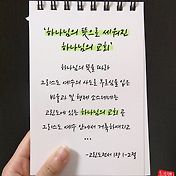 '하나님의 뜻으로 세워진
하나님의 교회'
하나님의 뜻을 따라
그리스도 예수의 사도로 부르심을 입은
바울과 및 형제 소스데네는
고린도에 있는 하나님의 교회 곧
그리스도 예수 안에서 거룩하여지고
...
-고린도전서 1장 1~2절